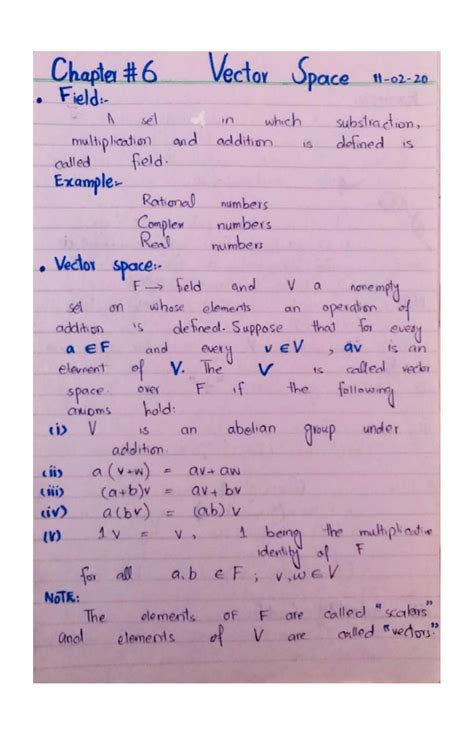 Chapter #6 Vector Space 11-02-20
• Field:-
A set in which substraction,
multiplication and addition is defined is
called field.
Example:-
Rational numbers
Complex numbers
Real numbers
• Vector space:-
F → field and V a nonempty
set on whose elements an operation of
addition is defined. Suppose that for every
a ∈ F and every v ∈ V , av is an
element of V. The V is called vector
space over F if the following
axioms hold:
(i) V is an abelian group under
addition.
(ii) a(v+w) = av+aw
(iii) (a+b)v = av+bv
(iv) a(bv) = (ab)v
(v) 1v = v, 1 being the multiplicative
identity of F
for all a,b ∈ F ; v,w ∈ V
NOTE:
The elements OF F are called "scalers"
and elements of V are called "vectors."